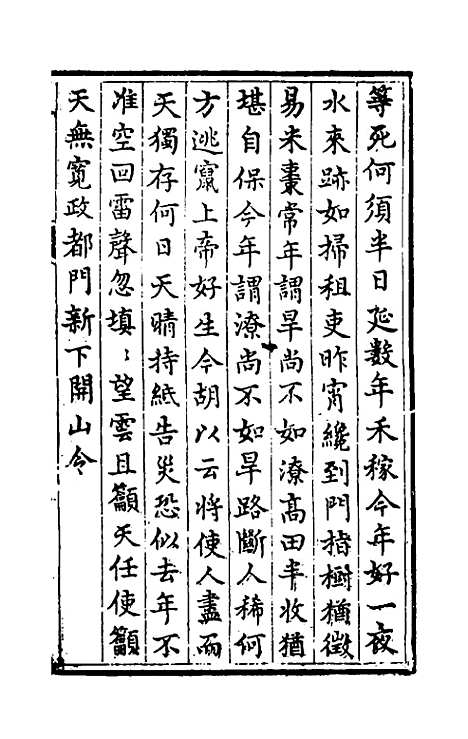 等死何須半日延數年禾稼今年好一夜
水來跡如掃租吏昨宵纔到門指樹猶徵
易米棗常年謂旱尚不如潦高田半收猶
堪自保今年謂潦尚不如旱路斷人稀何
方逃竄上帝好生今胡以云將使人盡而
天獨存何日天晴持紙告災恐似去年不
准空回雷聲忽填〻望雲且籲天任使籲
天無寬政都門新下開山令